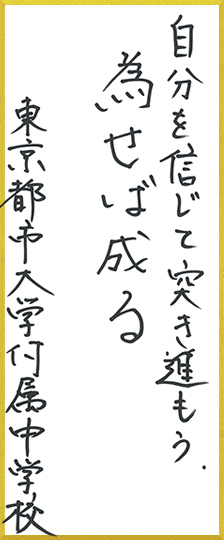 自分を信じて突き進もう.
為せば成る
東京都市大学付属中学校